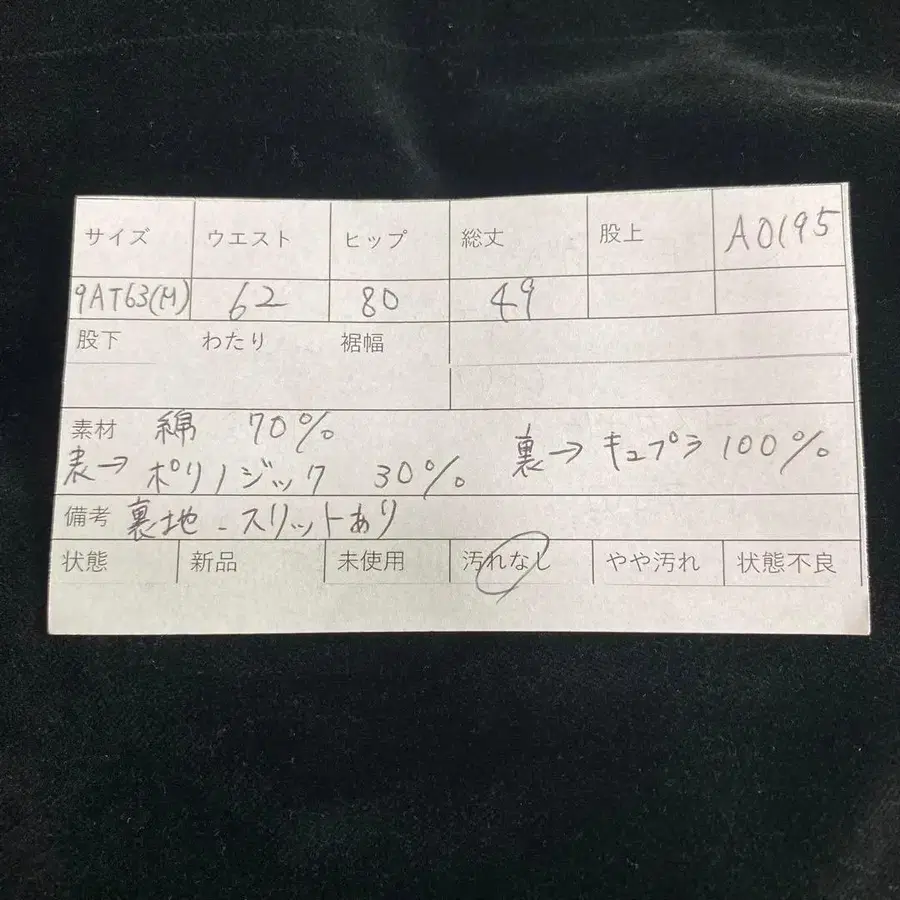 サイズ ウエスト ヒップ 総丈 股上 A0195
9AT63(M) 62 80 49
股下 わたり 裾幅
素材 綿 70%
表→ ポリノジック 30% 裏→ キュプラ 100%
備考 裏地-スリットあり
状態 新品 未使用 汚れなし やや汚れ 状態不良